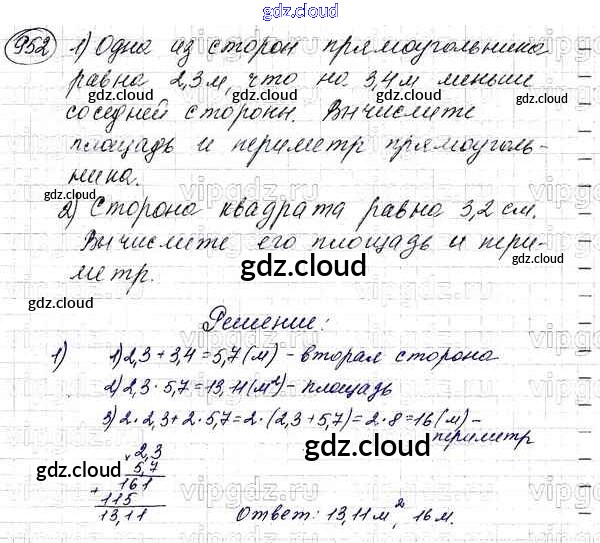 gdz.cloud
gdz.cloud
952 1) Одна из сторон прямоугольника
равна 2,3 м, что на 3,4 м меньше
gdz.cloud gdz.cloud gdz.cloud
соседней стороны. Вычислите
площадь и периметр прямоуголь-
ника.
gdz.cloud
2) Сторона квадрата равна 3,2 см.
Вычислите его площадь и пери-
метр.
gdz.cloud
gdz.cloud
Решение:
1) 1) 2,3 + 3,4 = 5,7 (м) - вторая сторона
2) 2,3 · 5,7 = 13,11 (м²) - площадь
3) 2 · 2,3 + 2 · 5,7 = 2 · (2,3 + 5,7) = 2 · 8 = 16 (м) -
периметр
gdz.cloud gdz.cloud gdz.cloud
× 2,3
5,7
161
+ 115
13,11
Ответ: 13,11 м², 16 м.